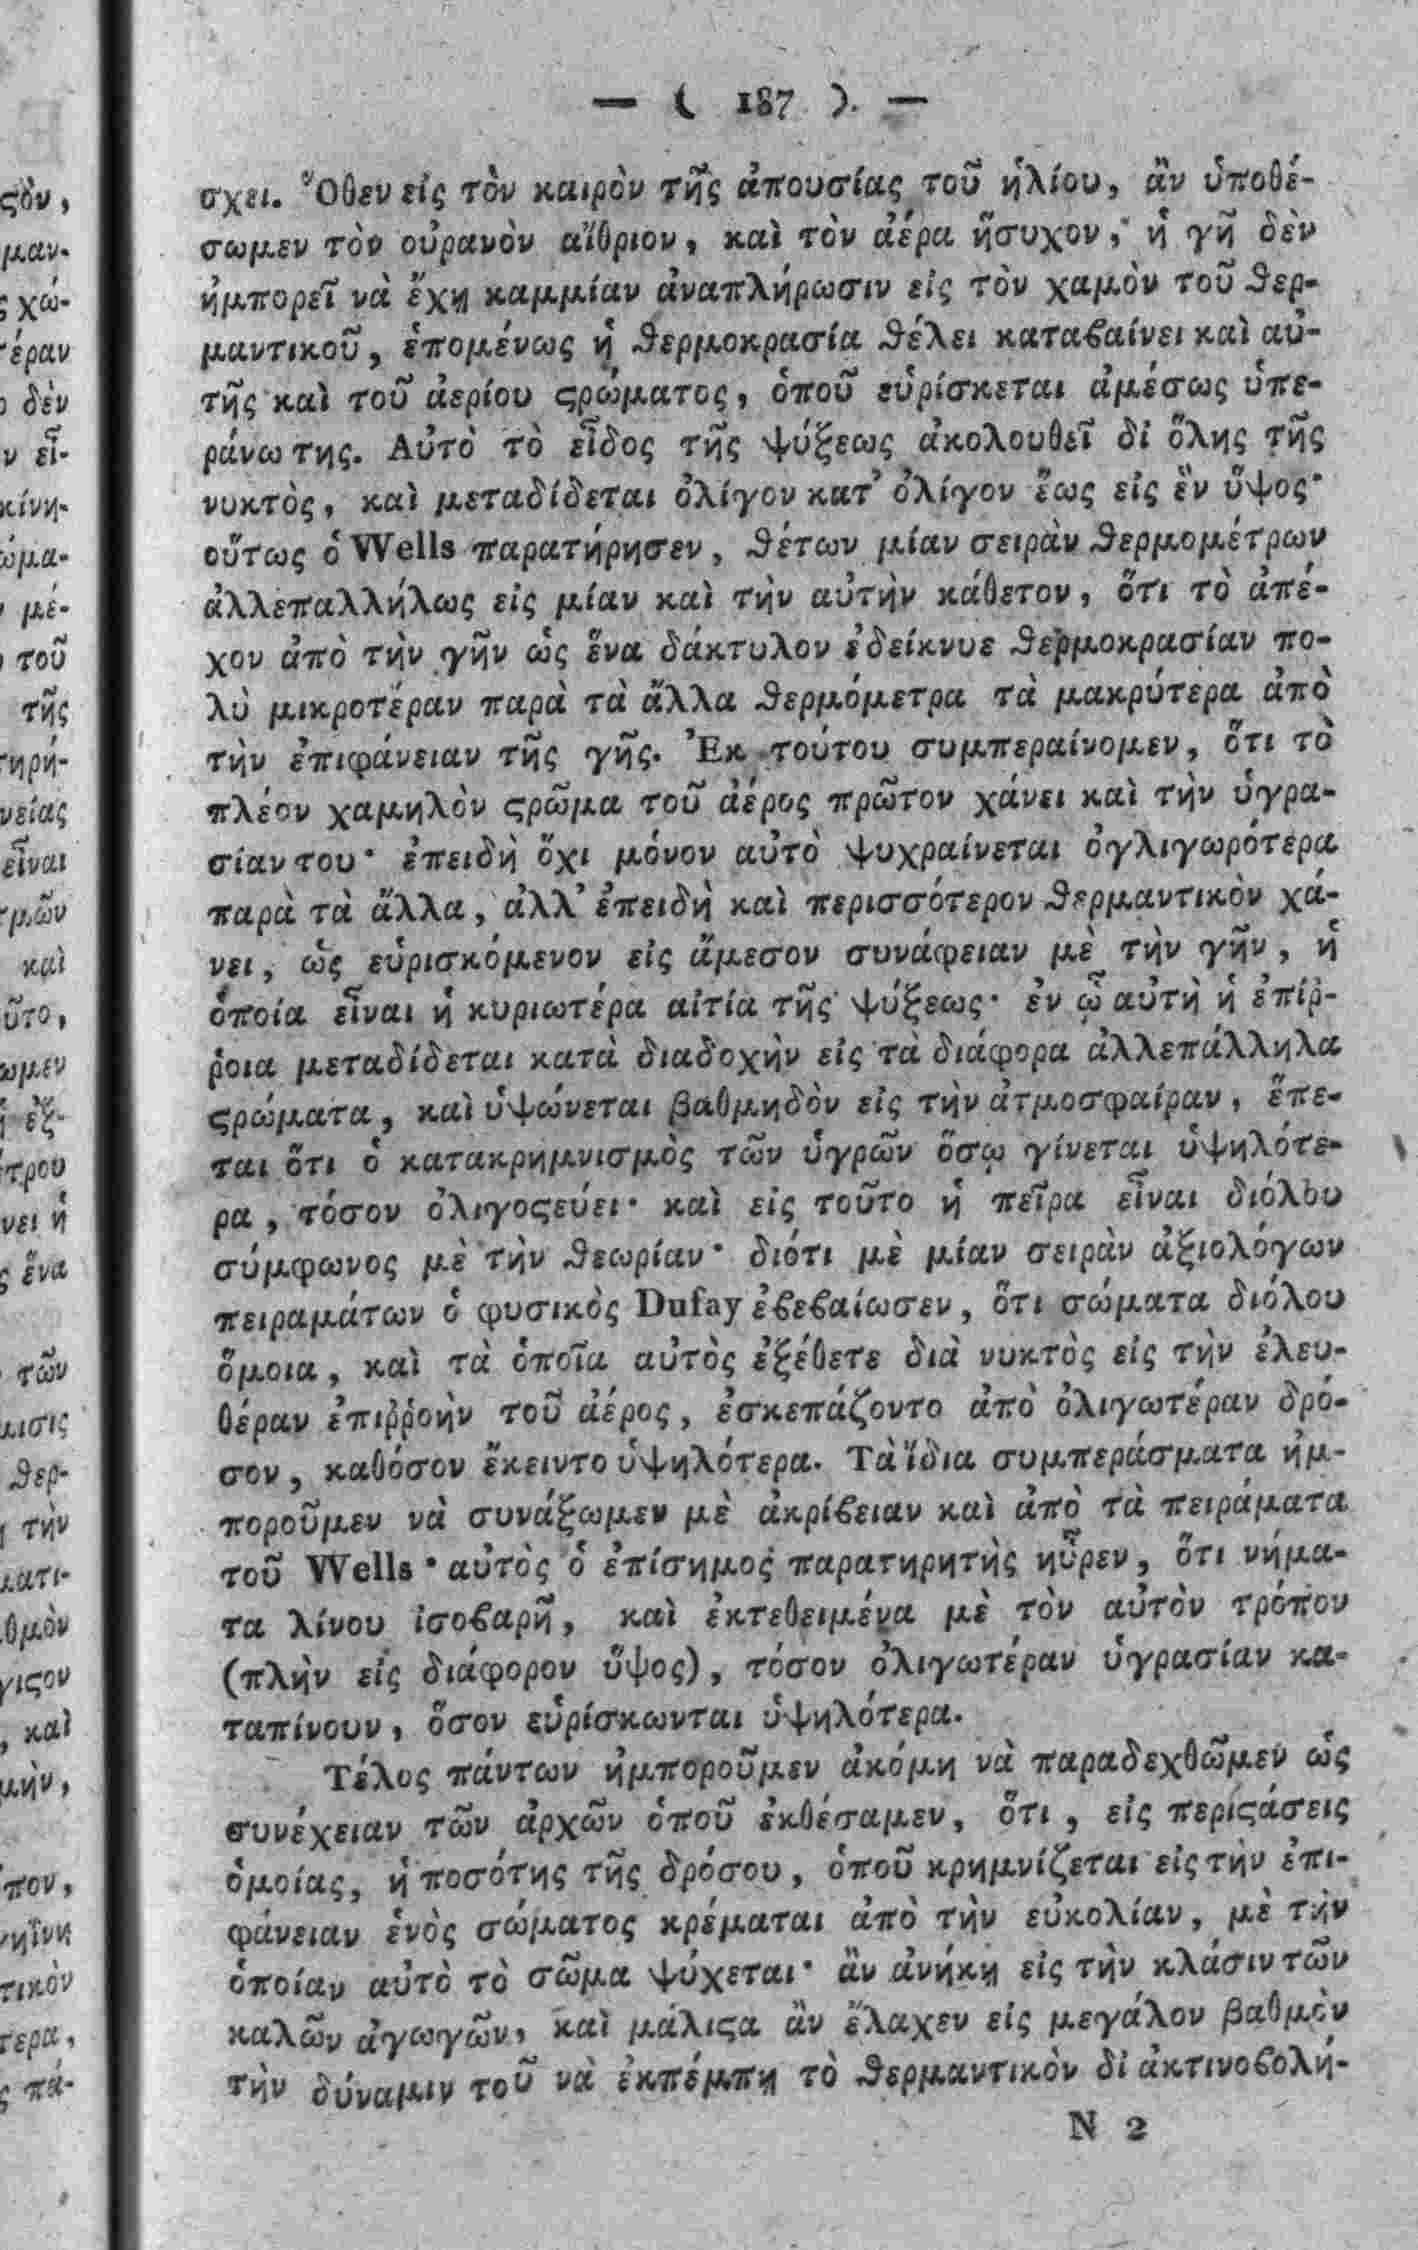 — ( 187 ). —
σχει. Ὅθεν εἰς τὸν καιρὸν τῆς ἀπουσίας τοῦ ἡλίου, ἂν ὑποθέ-
σωμεν τὸν οὐρανὸν αἴθριον, καὶ τὸν ἀέρα ἥσυχον, ἡ γῆ δὲν
ἠμπορεῖ νὰ ἔχῃ καμμίαν ἀναπλήρωσιν εἰς τὸν χαμὸν τοῦ ϑερ-
μαντικοῦ, ἑπομένως ἡ ϑερμοκρασία ϑέλει καταϐαίνει καὶ αὐ-
τῆς καὶ τοῦ ἀερίου ϛρώματος, ὁποῦ εὑρίσκεται ἀμέσως ὑπε-
ράνω της. Αὐτὸ τὸ εἶδος τῆς ψύξεως ἀκολουθεῖ δἰ ὅλης τῆς
νυκτὸς, καὶ μεταδίδεται ὀλίγον κατ' ὀλίγον ἕως εἰς ἓν ὕψος·
οὕτως ὁ Wells παρατήρησεν, ϑέτων μίαν σειρὰν ϑερμομέτρων
ἀλλεπαλλήλως εἰς μίαν καὶ τὴν αὐτὴν κάθετον, ὅτι τὸ ἀπέ-
χον ἀπὸ τὴν γῆν ὡς ἕνα δάκτυλον ἐδείκνυε ϑερμοκρασίαν πο-
λὺ μικροτέραν παρὰ τὰ ἄλλα ϑερμόμετρα τὰ μακρύτερα ἀπὸ
τὴν ἐπιφάνειαν τῆς γῆς. Ἐκ τούτου συμπεραίνομεν, ὅτι τὸ
πλέον χαμηλὸν ϛρῶμα τοῦ ἀέρος πρῶτον χάνει καὶ τὴν ὑγρα-
σίαν του· ἐπειδὴ ὄχι μόνον αὐτὸ ψυχραίνεται ὀγλιγωρότερα
παρὰ τὰ ἄλλα, ἀλλ' ἐπειδὴ καὶ περισσότερον ϑερμαντικὸν χά-
νει, ὡς εὑρισκόμενον εἰς ἄμεσον συνάφειαν μὲ τὴν γῆν, ἡ
ὁποία εἶναι ἡ κυριωτέρα αἰτία τῆς ψύξεως· ἐν ᾧ αὐτὴ ἡ ἐπίῤ-
ῥοια μεταδίδεται κατὰ διαδοχὴν εἰς τὰ διάφορα ἀλλεπάλληλα
ϛρώματα, καὶ ὑψώνεται βαθμηδὸν εἰς τὴν ἀτμοσφαίραν, ἕπε-
ται ὅτι ὁ κατακρημνισμὸς τῶν ὑγρῶν ὅσῳ γίνεται ὑψηλότε-
ρα, τόσον ὀλιγοϛεύει· καὶ εἰς τοῦτο ἡ πεῖρα εἶναι διόλου
σύμφωνος μὲ τὴν ϑεωρίαν· διότι μὲ μίαν σειρὰν ἀξιολόγων
πειραμάτων ὁ φυσικὸς Dufay ἐϐεϐαίωσεν, ὅτι σώματα διόλου
ὅμοια, καὶ τὰ ὁποῖα αὐτὸς ἐξέθετε διὰ νυκτὸς εἰς τὴν ἐλευ-
θέραν ἐπιῤῥοὴν τοῦ ἀέρος, ἐσκεπάζοντο ἀπὸ ὀλιγωτέραν δρό-
σον, καθόσον ἔκειντο ὑψηλότερα. Τὰ ἴδια συμπεράσματα ἠμ-
ποροῦμεν νὰ συνάξωμεν μὲ ἀκρίϐειαν καὶ ἀπὸ τὰ πειράματα
τοῦ Wells· αὐτὸς ὁ ἐπίσημος παρατηρητὴς ηὗρεν, ὅτι νήμα-
τα λίνου ἰσοϐαρῆ, καὶ ἐκτεθειμένα μὲ τὸν αὐτὸν τρόπον
(πλὴν εἰς διάφορον ὕψος), τόσον ὀλιγωτέραν ὑγρασίαν κα-
ταπίνουν, ὅσον εὑρίσκωνται ὑψηλότερα.
Τέλος πάντων ἠμποροῦμεν ἀκόμη νὰ παραδεχθῶμεν ὡς
συνέχειαν τῶν ἀρχῶν ὁποῦ ἐκθέσαμεν, ὅτι, εἰς περιϛάσεις
ὁμοίας, ἡ ποσότης τῆς δρόσου, ὁποῦ κρημνίζεται εἰς τὴν ἐπι-
φάνειαν ἑνὸς σώματος κρέμαται ἀπὸ τὴν εὐκολίαν, μὲ τὴν
ὁποίαν αὐτὸ τὸ σῶμα ψύχεται· ἂν ἀνήκῃ εἰς τὴν κλάσιν τῶν
καλῶν ἀγωγῶν, καὶ μάλιϛα ἂν ἔλαχεν εἰς μεγάλον βαθμὸν
τὴν δύναμιν τοῦ νὰ ἐκπέμπῃ τὸ ϑερμαντικὸν δἰ ἀκτινοϐολή-
N 2